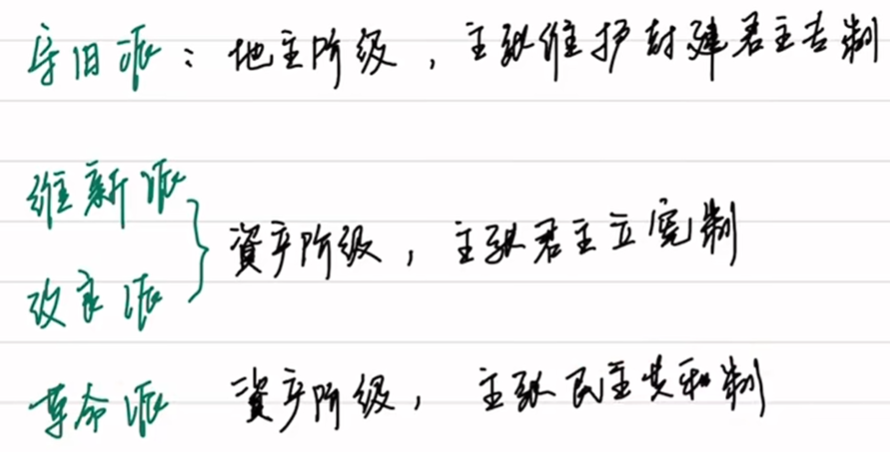 守旧派：地主阶级，主张维护封建君主专制
维新派
资产阶级，主张君主立宪制
改良派
革命派 资产阶级，主张民主共和制